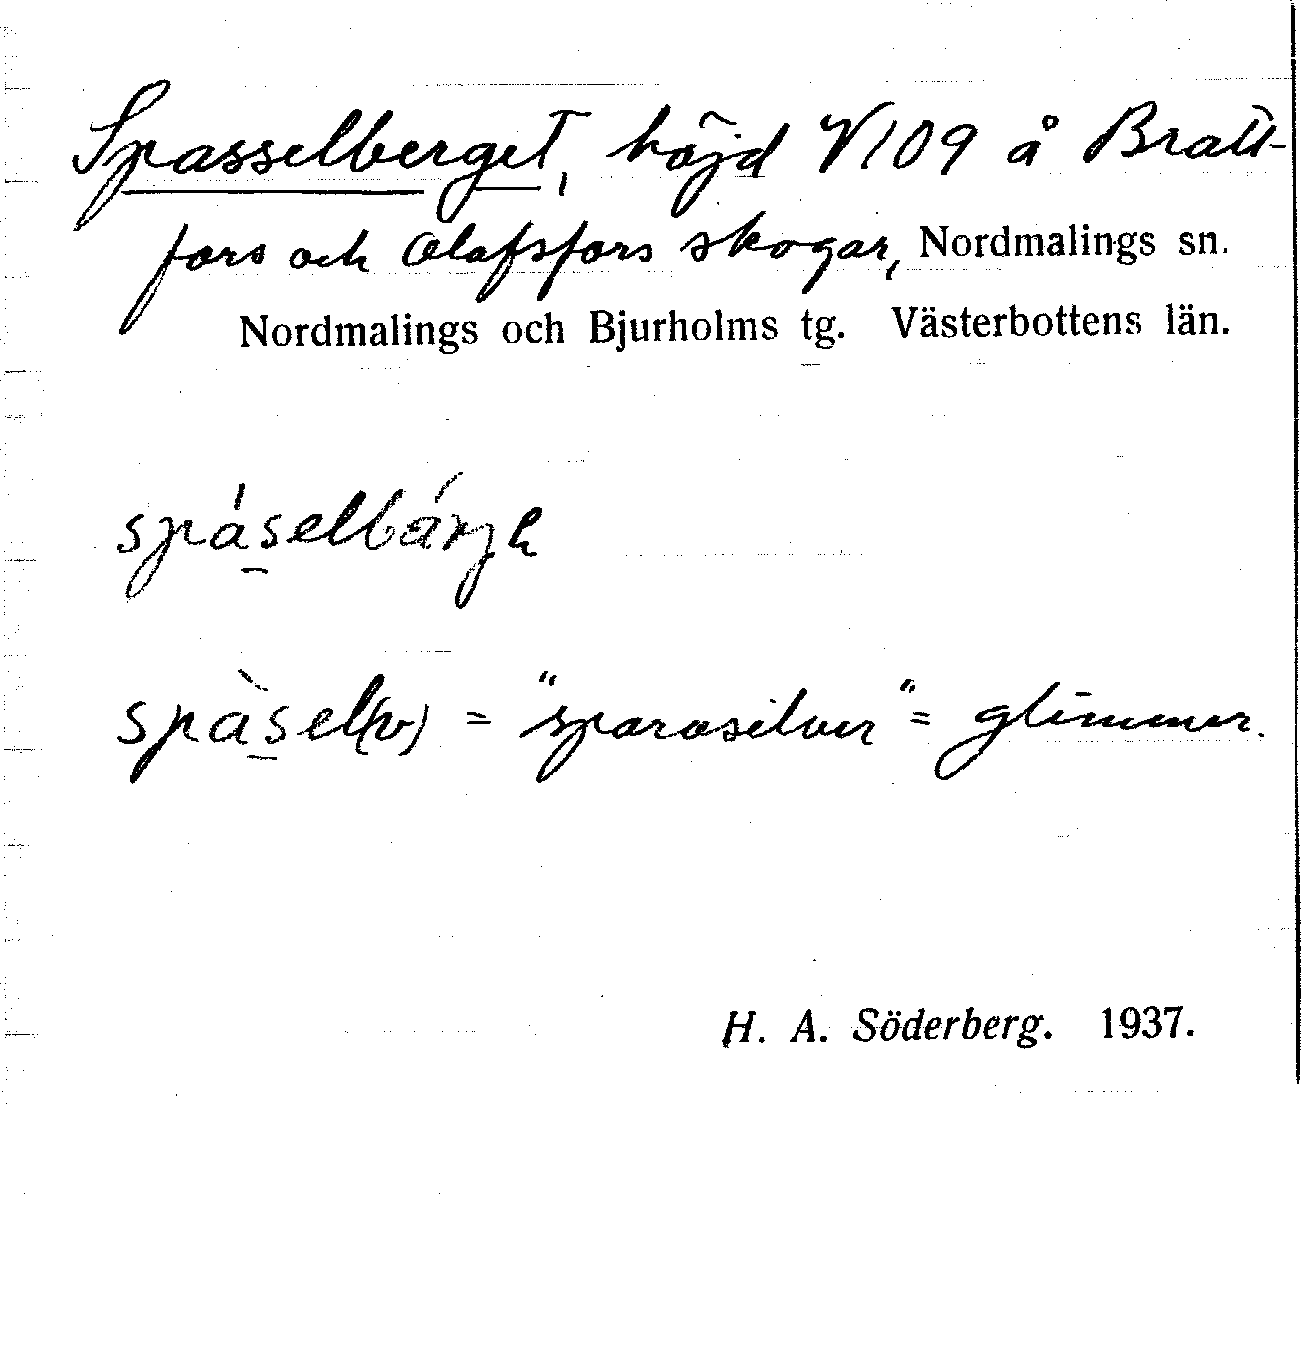 Spasselberget, höjd V109 å Bratt-
fors och Olafsfors skogar, Nordmalings sn.
Nordmalings och Bjurholms tg. Västerbottens län.
spáselbárjɐ
spàsel(v) = "sparvsilver" = glimmer.
H. A. Söderberg. 1937.